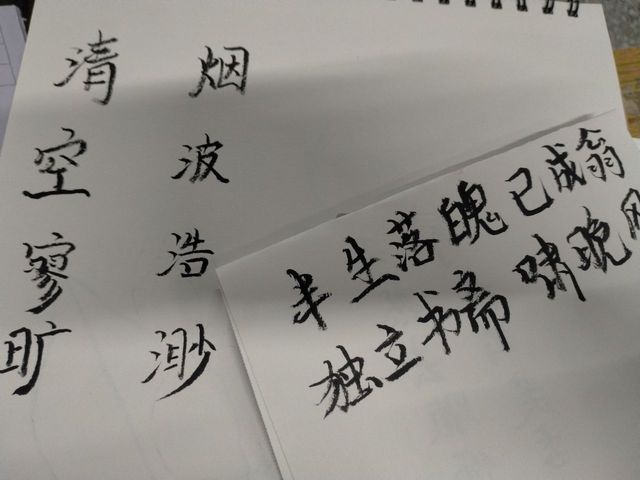 烟波浩渺
清空寥旷
半生落魄已成翁
独立书斋啸晚风